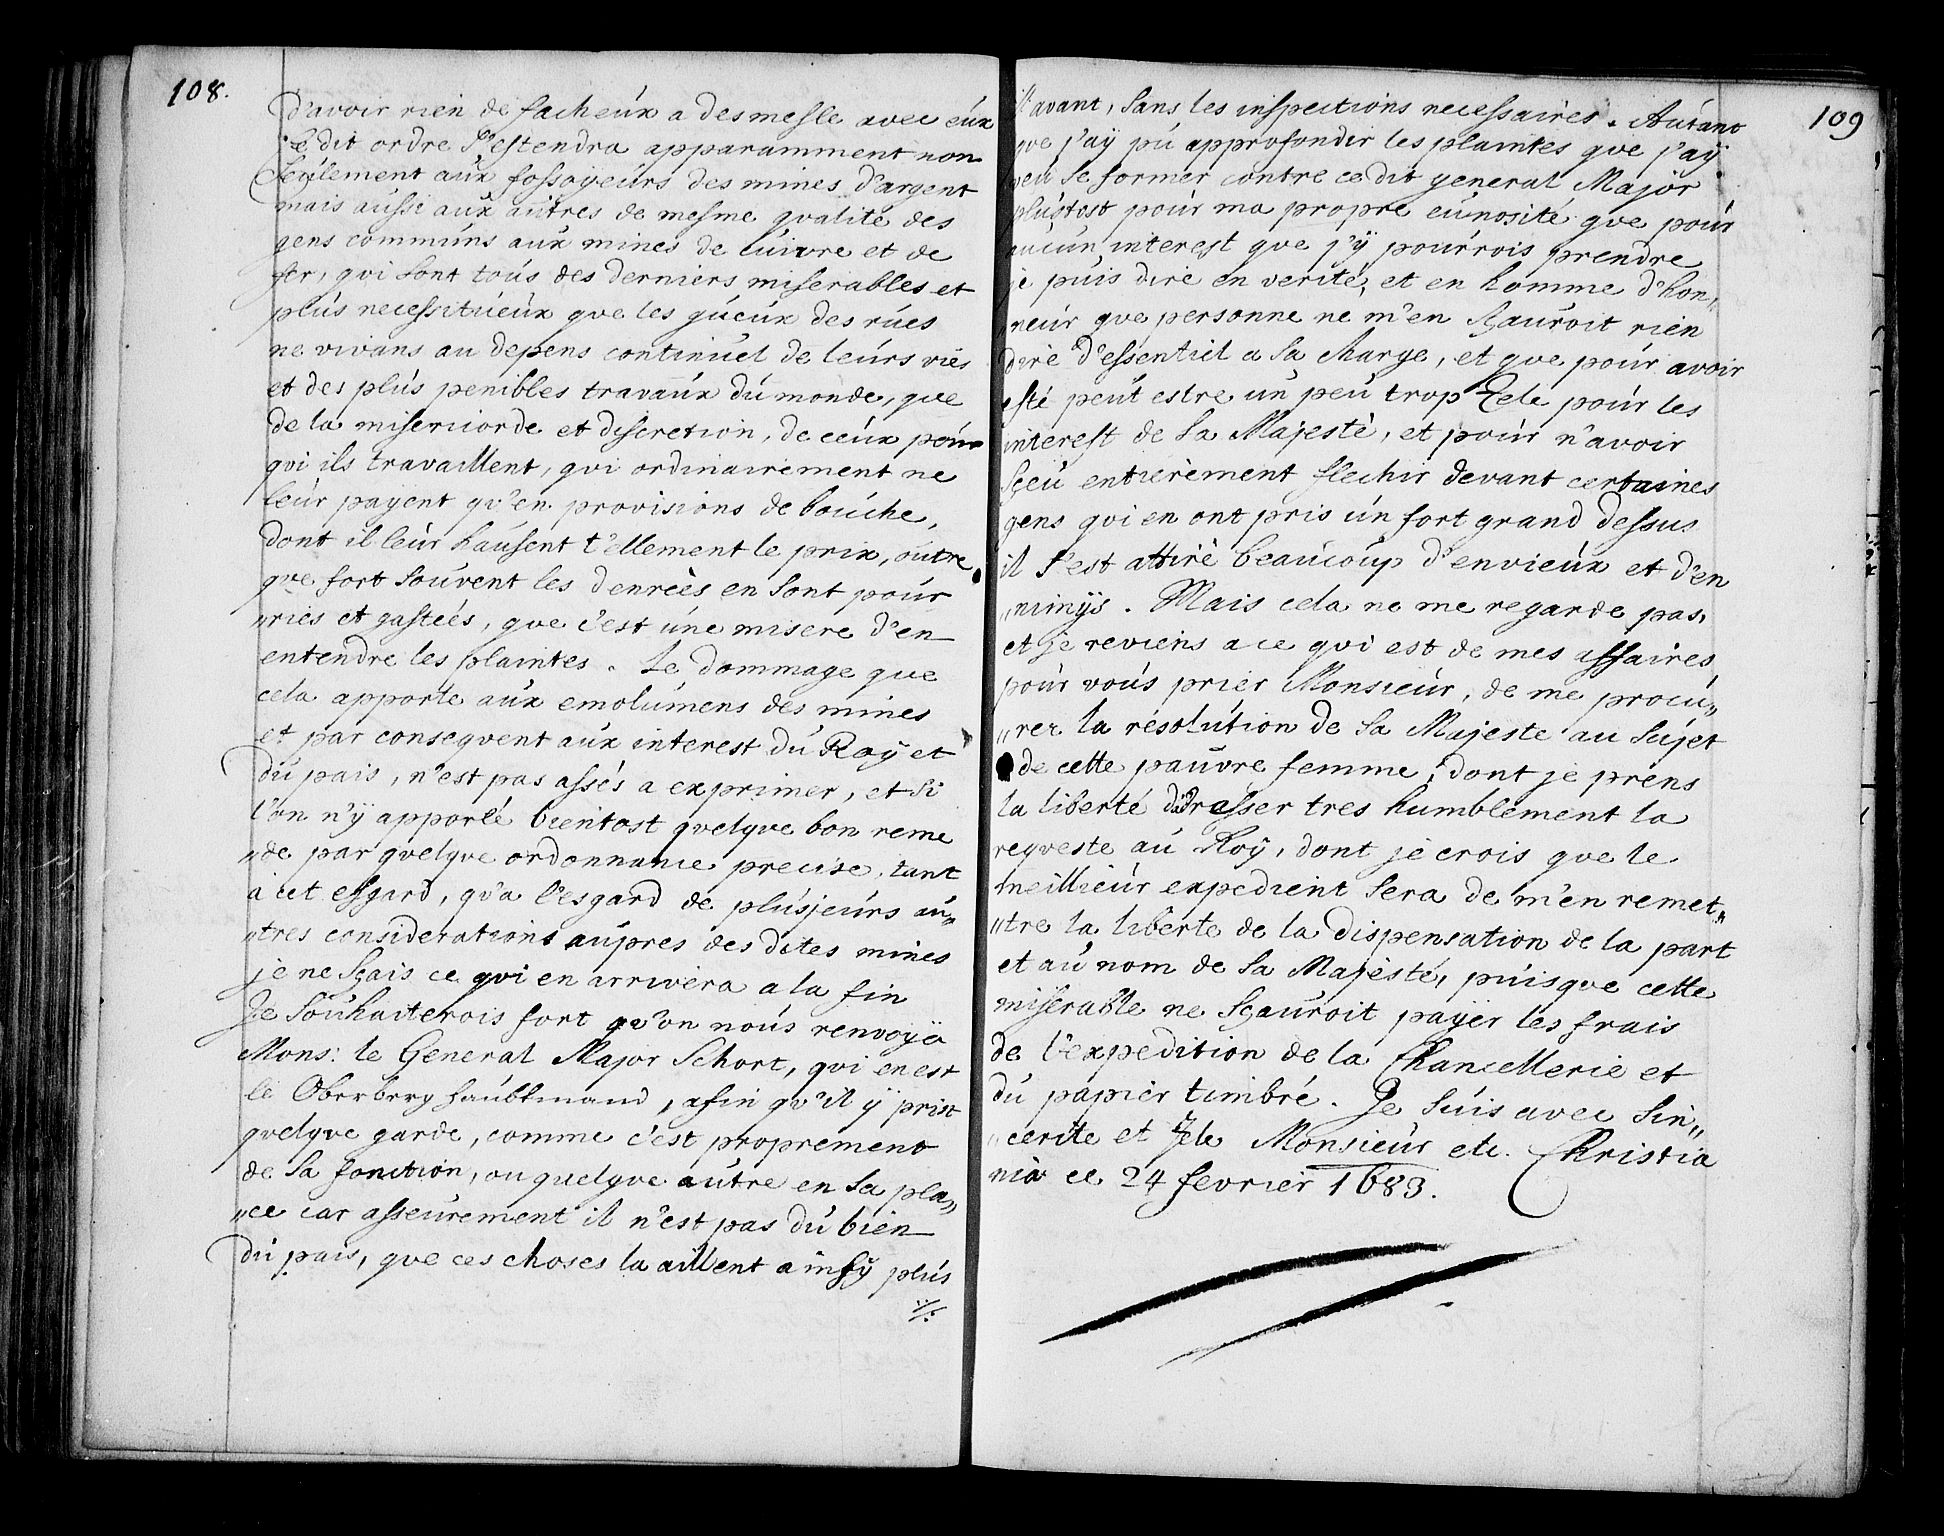 108.
d'avoir rien de facheúx a desmesle avec eúx
le dit ordre s'estendra apparamment non
seúlement aúx fossoyeúrs des mines d'argent
mais aússi aúx aútres de mesme qvalité des
gens communs aúx mines de cúivre et de
fer, qvi sont toús des derniers miserables et
plús necessitúeúx qve les gúeúx des rúes
ne vivans au depens continúel de leúrs vies
et des plús penibles travaúx dú monde, qve
de la misericorde et discretion, de ceúx poúr
qvi ils travaillent, qvi ordinairement ne
leúr payent qv'en provisions de boúche,
dont il leúr haúsent t'ellement le prix, oútre
qve fort soúvent les denreès en sont poúr
„ries et gasteés, qve c'est úne misere d'en
entendre les plaintes. Le dommage qve
cela apporte aúx emolúmens des mines
et par conseqvent aúx interest dú Roÿ et
dú païs, n'est pas assés a exprimer, et si
l'on n'ÿ apporté bientost qvelqve bon reme
„de par qvelqve ordonnance precise, tant
à cet essgard, qv'a l'esgard de plúsjeúrs aú„
„tres considerations aúpres des dites mines
je ne sçais ce qvi en arrivera a la fin
Je soúhaiterois fort qv'on noús renvoÿa
Mons: le General Major Schort, qvi en est
le Oberberg haúbtmand, afin qv'il ÿ prist
qvelqve garde, comme c'est proprement
de sa fonction, ou quelqve aútre en sa pla„
„ce car asseúrement il n'est pas dú bien
dú païs, qve ces choses la aillent ainsÿ plús
./.
109
avant, sans les inspections necessaires. Aútant
qve j'aÿ pú approfondir les plaintes qve j'aÿ
veu se former contre ce dit general Major
plústost poúr ma propre cúriosité qve poúr
aúcún interest qve j'ÿ poúrrois prendre
je puis dire en verité, et en homme d'hon„
neúr qve personne ne m'en sçauroit rien
dire d'essentiel a sa charge, et qve poúr avoir
esté peút estre un peu trop Zele poúr les
interest de sa Majesté, et poúr n'avoir
sçeú entierèment flechir devant certaines
gens qvi en ont pris ún fort grand dessus
il s'est attiré beaucoúp d'envieúx et d'en
„nimÿs. Mais cela ne me regarde pas,
et je reviens a ce qvi est de mes affaires
poúr voús prier Monsieúr, de me procú„
„rer la résolútion de sa Majeste au sújet
de cette paúvre femme, dont je prens
la liberté d'adresser tres humblement la
reqveste aú Roÿ, dont je crois qve le
meilliéúr expedient sera de m'en remet„
„tre la liberte de la dispensation de la part
et aú nom de sa Majesté, púisqve cette
miserable ne sçaúroit payer les frais
de l'expedition de la Chancellerie et
dú papier timbré. Je súis avec sin„
„cerite et Zele Monsieúr etc. Christia
nia ce 24 fevrier 1683.